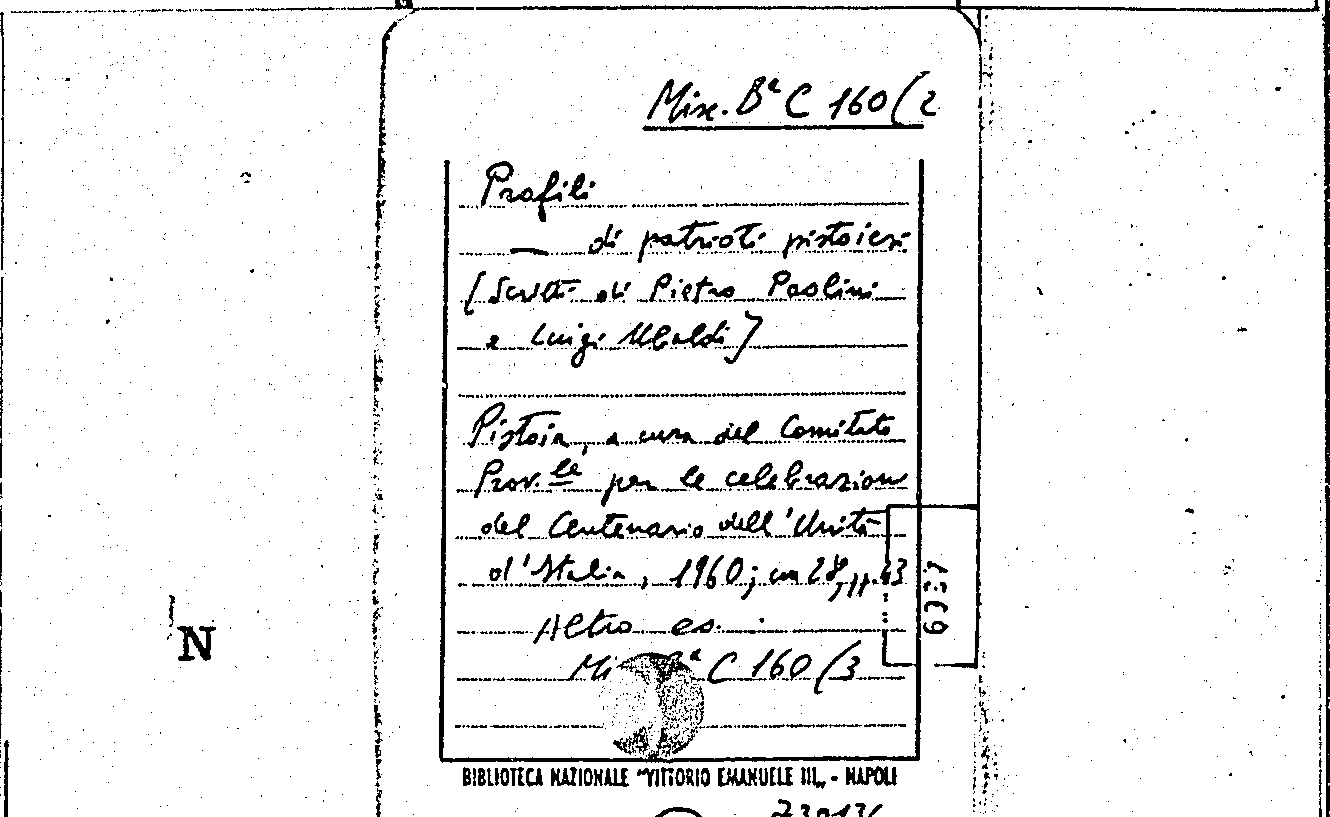 Misc. Bª C 160(2
Profili
— di patrioti pistoiesi
[Scritti di Pietro Paolini
e Luigi Ubaldi]
Pistoia, a cura del Comitato
Prov.le per le celebrazioni
del Centenario dell'Unità
d'Italia, 1960; cm 28, pp. 43
6937
Altro es.
N
C 160(3
BIBLIOTECA NAZIONALE "VITTORIO EMANUELE III„ - NAPOLI